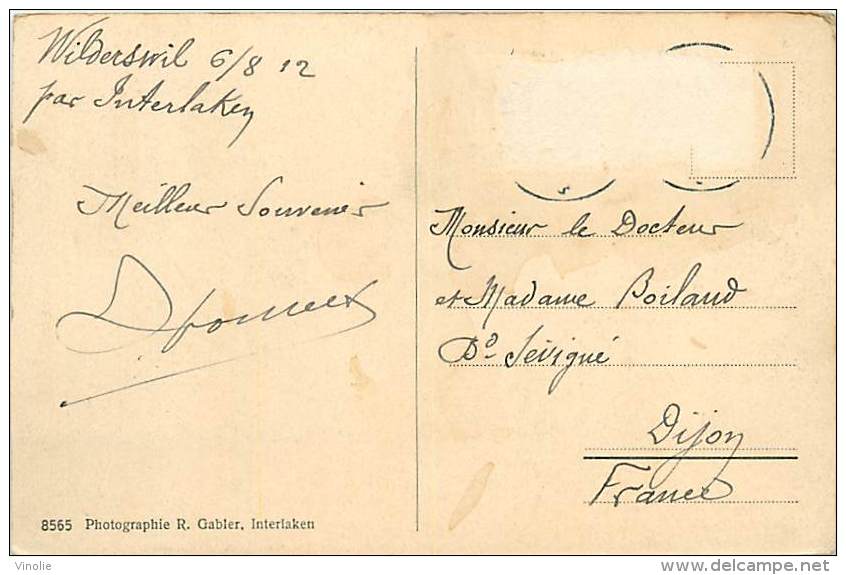 Wilderswil 6/8 12
par Interlaken
Meilleur Souvenir
Monsieur le Docteur
et Madame Boiland
Bd Sévigné
Dijon
France
8565 Photographie R. Gabler, Interlaken
Vinolie
delcampe.net